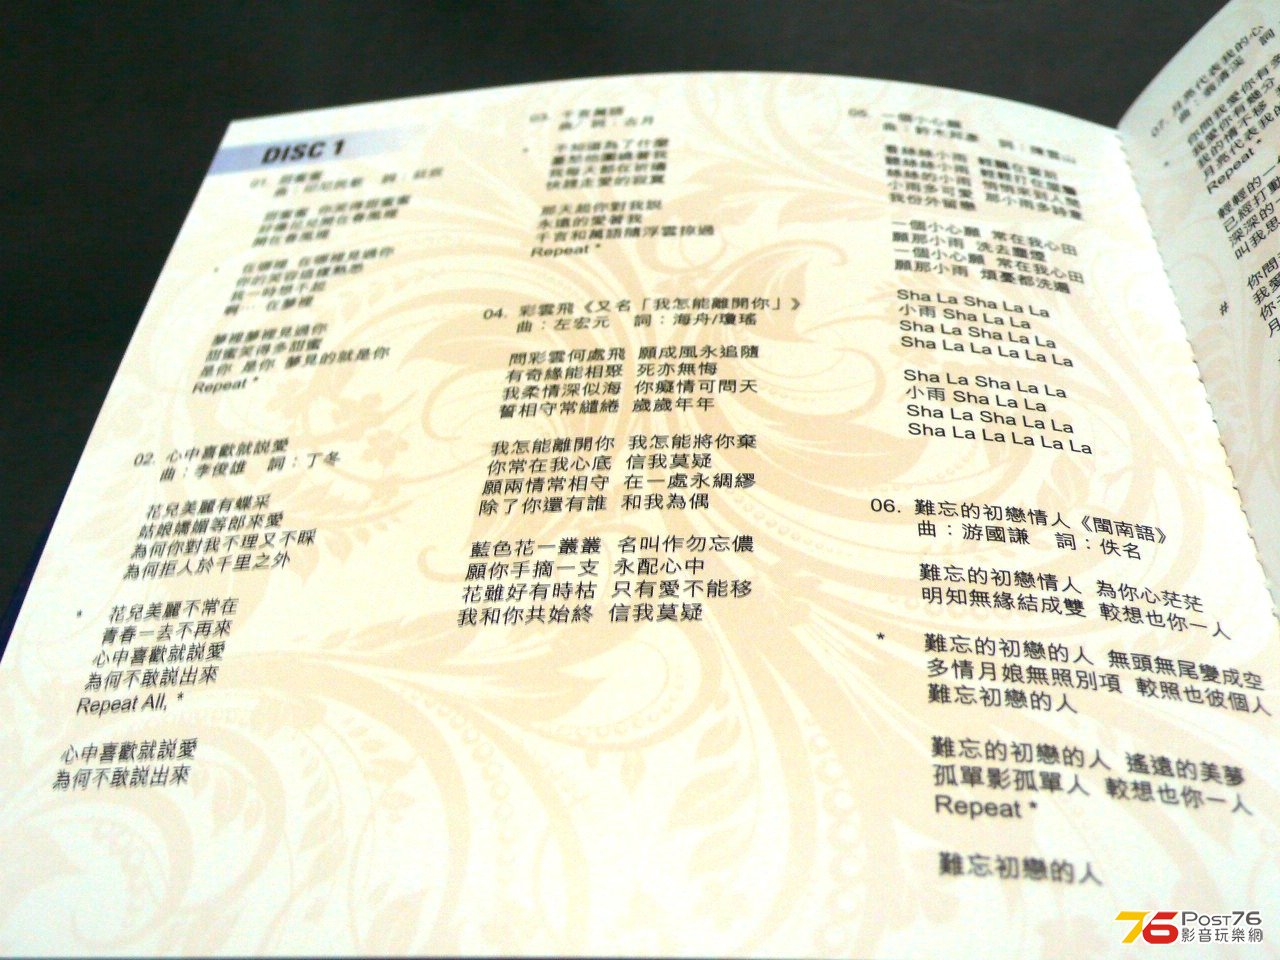 DISC 1
01. 甜蜜蜜
曲：印尼民歌 詞：莊奴
甜蜜蜜 你笑得甜蜜蜜
好像花兒開在春風裡
開在春風裡
* 在哪裡 在哪裡見過你
你的笑容這樣熟悉
我一時想不起
啊… 在夢裡
夢裡夢裡見過你
甜蜜笑得多甜蜜
是你 是你 夢見的就是你
Repeat *
02. 心中喜歡就説愛
曲：李俊雄 詞：丁冬
花兒美麗有蝶采
姑娘嬌媚等郎來愛
為何你對我不理又不睬
為何拒人於千里之外
* 花兒美麗不常在
青春一去不再來
心中喜歡就説愛
為何不敢説出來
Repeat All, *
心中喜歡就説愛
為何不敢説出來
03. 千言萬語
曲／詞：古月
* 不知道為了什麼
憂愁他圍繞著我
我每天都在祈禱
快趕走愛的寂寞
那天起你對我説
永遠的愛著我
千言和萬語隨浮雲掠過
Repeat *
04. 彩雲飛《又名「我怎能離開你」》
曲：左宏元 詞：海舟/瓊瑤
問彩雲何處飛 願成風永追隨
有奇緣能相聚 死亦無悔
我柔情深似海 你癡情可問天
誓相守常繾綣 歲歲年年
我怎能離開你 我怎能將你棄
你常在我心底 信我莫疑
願兩情常相守 在一處永綢繆
除了你還有誰 和我為偶
藍色花一叢叢 名叫作勿忘儂
願你手摘一支 永配心中
花雖好有時枯 只有愛不能移
我和你共始終 信我莫疑
05. 一個小心願
曲：鈴木邦彥 詞：陳雲山
看絲絲小雨 輕飄在
聽絲絲小雨
小雨多可愛 那小雨多詩意
我份外留戀
一個小心願 常在我心田
願那小雨 洗去塵煙
一個小心願 常在我心田
願那小雨 煩憂都洗遍
Sha La Sha La La
小雨 Sha La La
Sha La Sha La La
Sha La La La La La
Sha La Sha La La
小雨 Sha La La
Sha La Sha La La
Sha La La La La La
06. 難忘的初戀情人《閩南語》
曲：游國謙 詞：佚名
難忘的初戀情人 為你心茫茫
明知無緣結成雙 較想也你一人
* 難忘的初戀的人 無頭無尾變成空
多情月娘無照別項 較照也彼個人
難忘初戀的人
難忘的初戀的人 遙遠的美夢
孤單影孤單人 較想也你一人
Repeat *
難忘初戀的人
07. 月亮代表我的心
曲：翁清溪 詞
* 你問我愛你有多
我愛你有幾分
我的情不移
月亮代表我
Repeat *
輕輕的一
已經打動
深深的
叫我思
# 你問
我愛
你
月
76 POST76
影音玩樂網